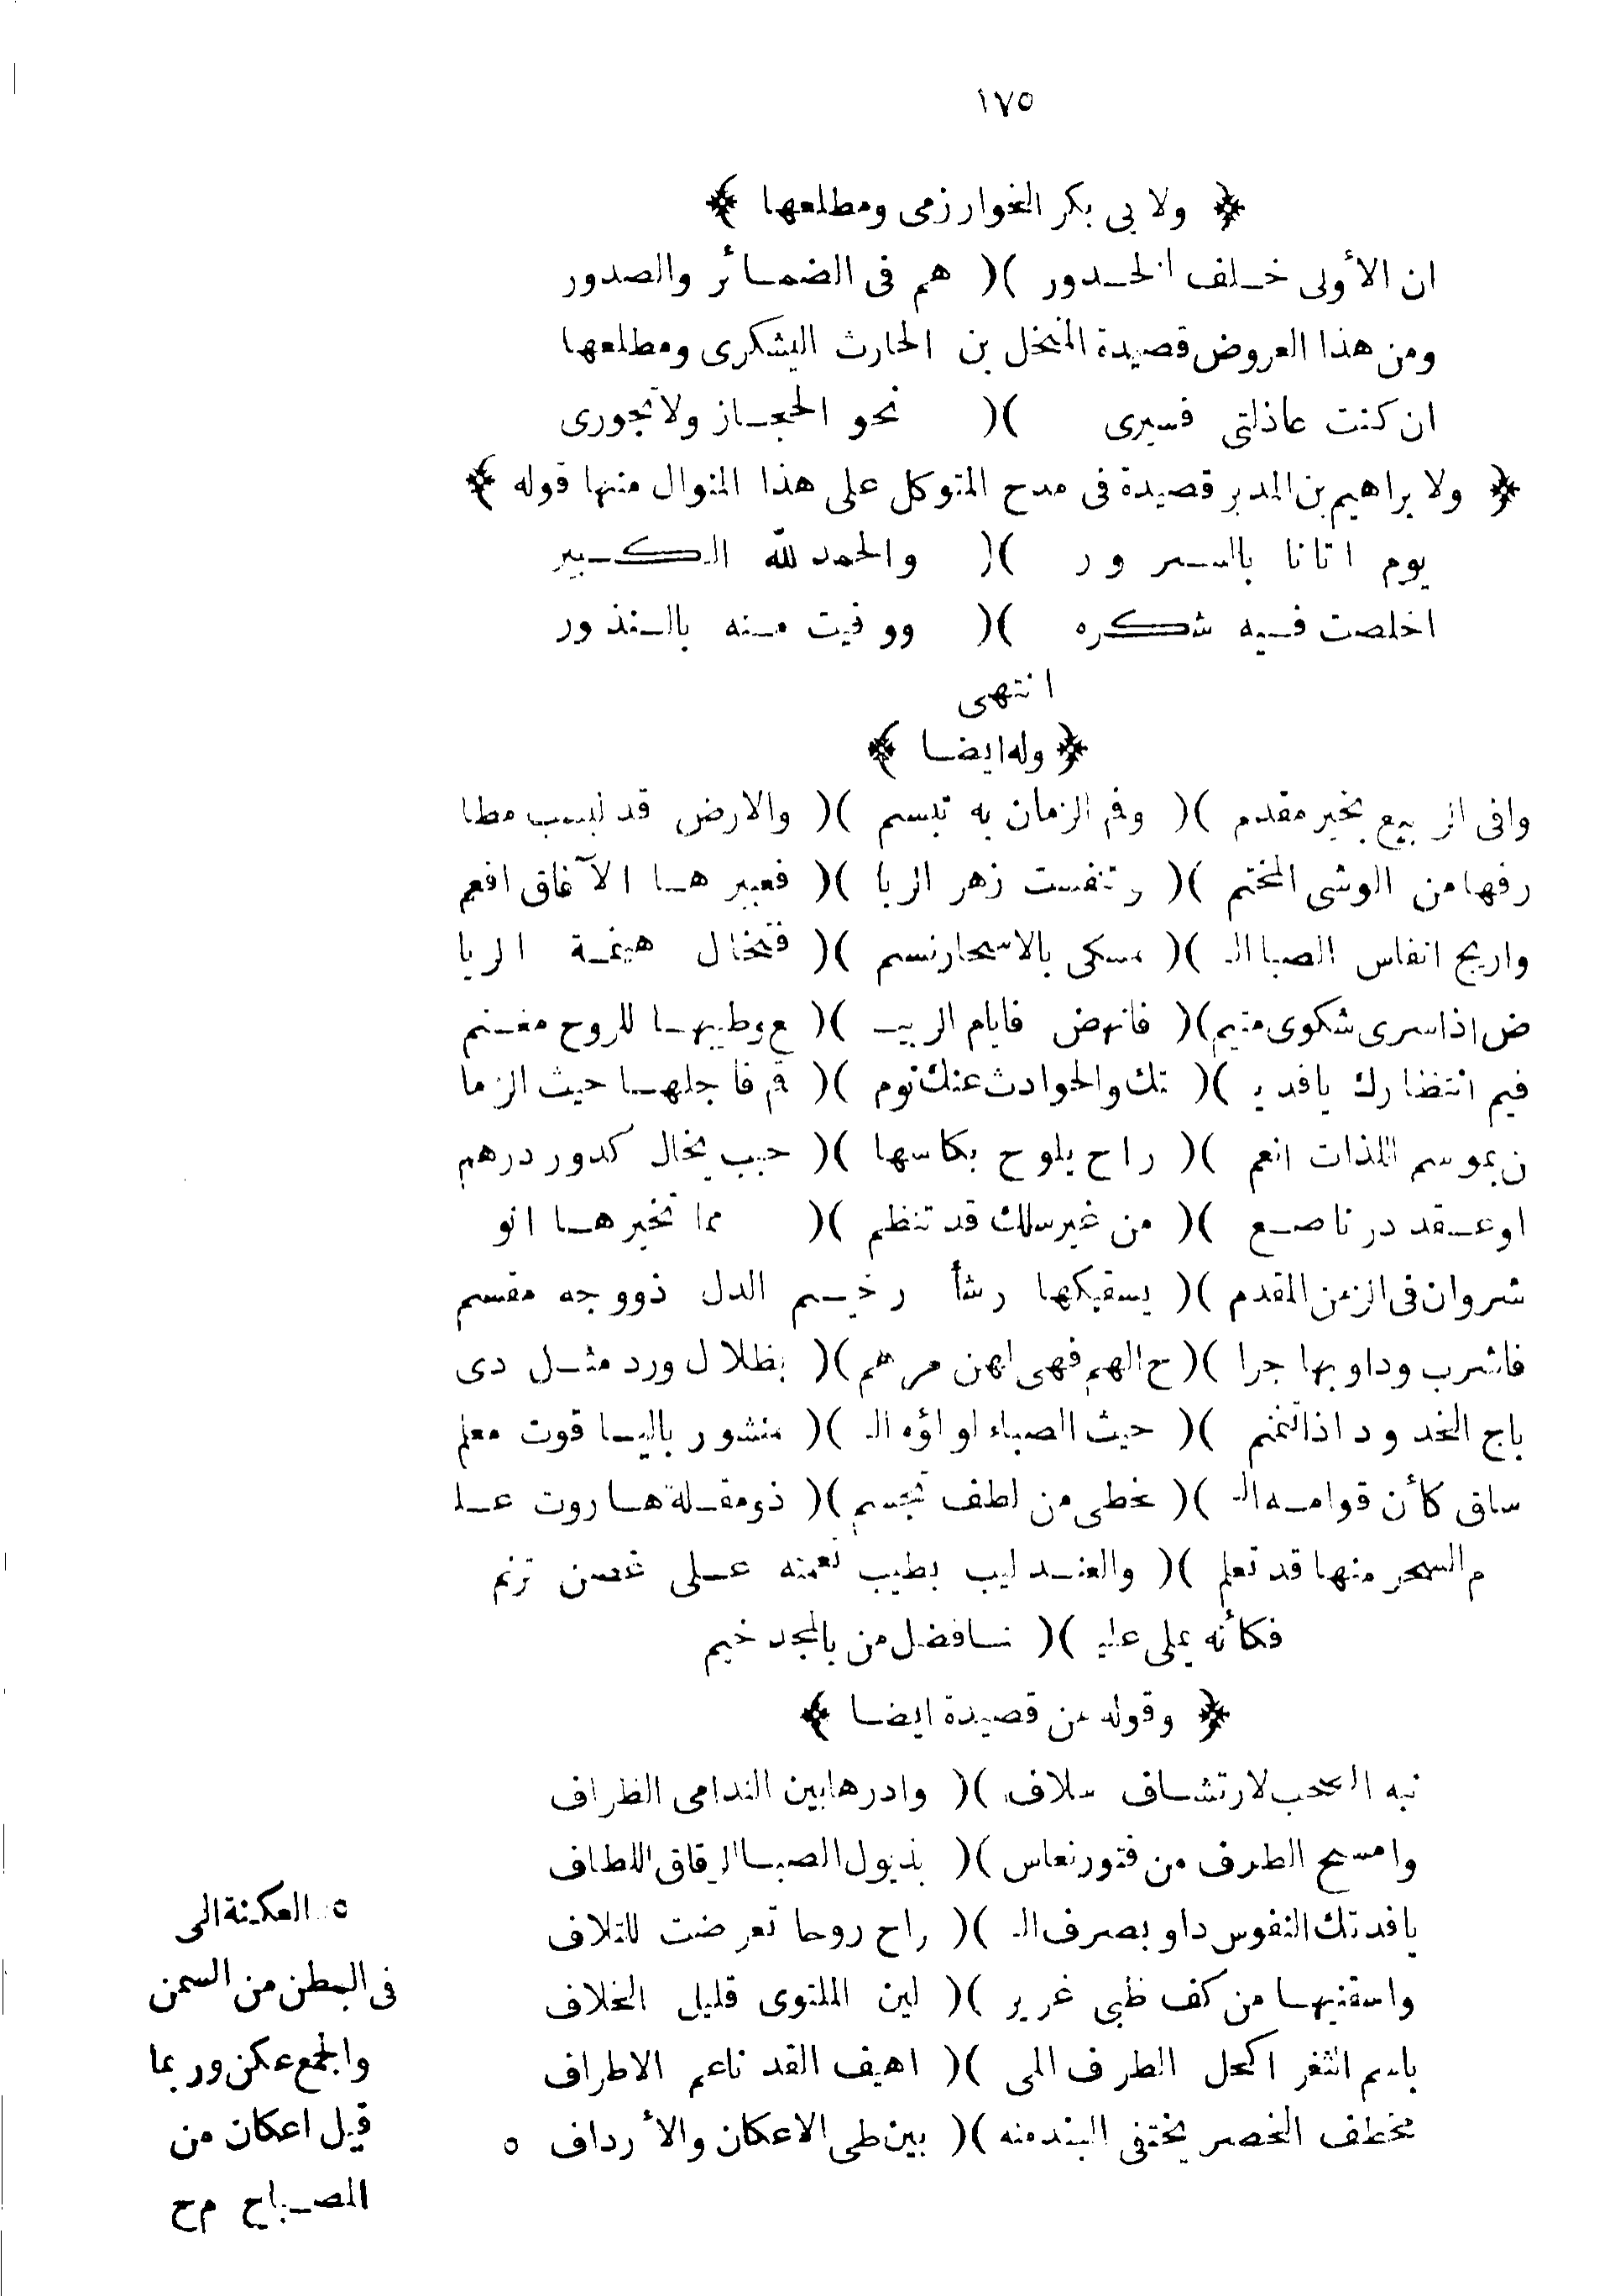 ١٧٥
﴿ ولابى بكر الخوارزمى ومطلعها ﴾
ان الأولى خلف الخدور )( هم فى الضمائر والصدور
ومن هذا العروض قصيدة المنخل بن الحارث اليشكرى ومطلعها
ان كنت عاذلتى فسيرى )( نحو الحجاز ولاتجورى
﴿ ولابراهيم بن المدبر قصيدة فى مدح المتوكل على هذا المنوال منها قوله ﴾
يوم اتانا بالسرور )( والحمد لله الكبير
اخلصت فيه شكره )( ووفيت منه بالنذور
انتهى
﴿ وله ايضا ﴾
وافى الربيع بخير مقدم )( وفم الزمان به تبسم )( والارض قد لبست مطا
رفها من الوشى المختم )( وتنفست زهر الربا )( فعبيرها الآفاق افعم
واريج انفاس الصبا الـ )( مسكى بالاسحار نسم )( فتخال هينمة الريا
ض اذا سرى شكوى متيم )( فانهض فايام الربيـ )( ع وطيبها للروح مغنم
فيم انتظارك يافديـ )( تك والحوادث عنك نوم )( قم فاجلها حيث الزما
ن بموسم اللذات انعم )( راح يلوح بكاسها )( حبب يخال كدور درهم
اوعقد در ناصع )( من غير سلك قد تنظم )( مما تخيرها انو
شروان فى الزمن المقدم )( يسقيكها رشأ رخيم الدل ذووجه مقسم
فاشرب وداو بها جرا )( ح الهم فهى لهن مرهم )( بظلال ورد مثل دى
باج الخدود اذاتنمنم )( حيث الصباء لولؤه الـ )( منثور بالياقوت معلم
ساق كأن قوامه الـ )( خطى من لطف تجسم )( ذومقلة هاروت علـ
م السحر منها قد تعلم )( والعندليب بطيب نغمته على غصن ترنم
فكأنه يملى عليـ )( نا فضل من بالمجد خيم
﴿ وقوله من قصيدة ايضا ﴾
نبه الصحب لارتشاف سلاف )( وادرها بين الندامى الظراف
وامسح الطرف من فتور نعاس )( بذيول الصبا الرقاق اللطاف
يافدتك النفوس داو بصرف الـ )( راح روحا تعرضت للتلاف
واسقنيها من كف ظبى غرير )( لين الملتوى قليل الخلاف
باسم الثغر اكحل الطرف المى )( اهيف القد ناعم الاطراف
مخطف الخصر يختفى البند منه )( بين طى الاعكان والأرداف ٥
٥ العكنة الى
فى البطن من السمن
والجمع عكن وربما
قيل اعكان من
المصباح م ح